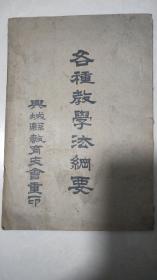 各種教學法綱要
興城縣教育支會重印